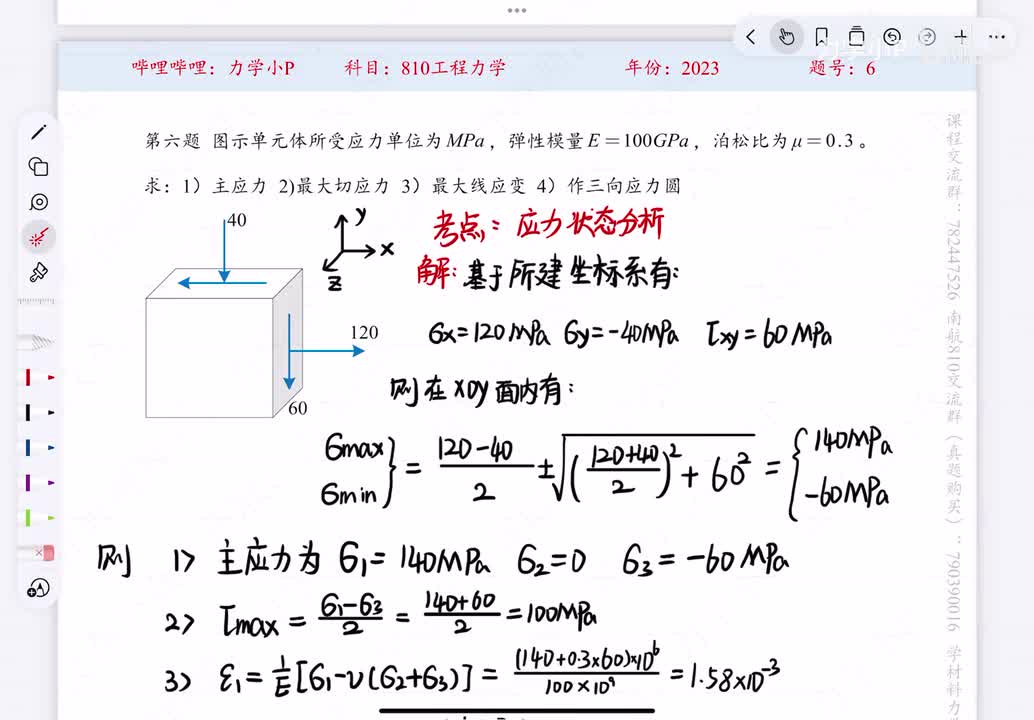 哔哩哔哩：力学小P 科目：810工程力学 年份：2023 题号：6
第六题 图示单元体所受应力单位为MPa，弹性模量E＝100GPa，泊松比为μ＝0.3。
求：1）主应力 2)最大切应力 3）最大线应变 4）作三向应力圆
40
120
60
y
x
z
考点：应力状态分析
解：基于所建坐标系有：
σx=120MPa σy=-40MPa τxy=60MPa
则在xoy面内有：
σmax
σmin } = (120-40)/2 ± √((120+40)/2)²+60² = { 140MPa
-60MPa
则 1> 主应力为 σ1=140MPa σ2=0 σ3=-60MPa
2> τmax = (σ1-σ3)/2 = (140+60)/2 = 100MPa
3> ε1 = 1/E[σ1-ν(σ2+σ3)] = (140+0.3×60)×10⁶/100×10⁹ = 1.58×10⁻³
课程交流群：782447526 南航810交流群（真题购买）：790390016 学材料力